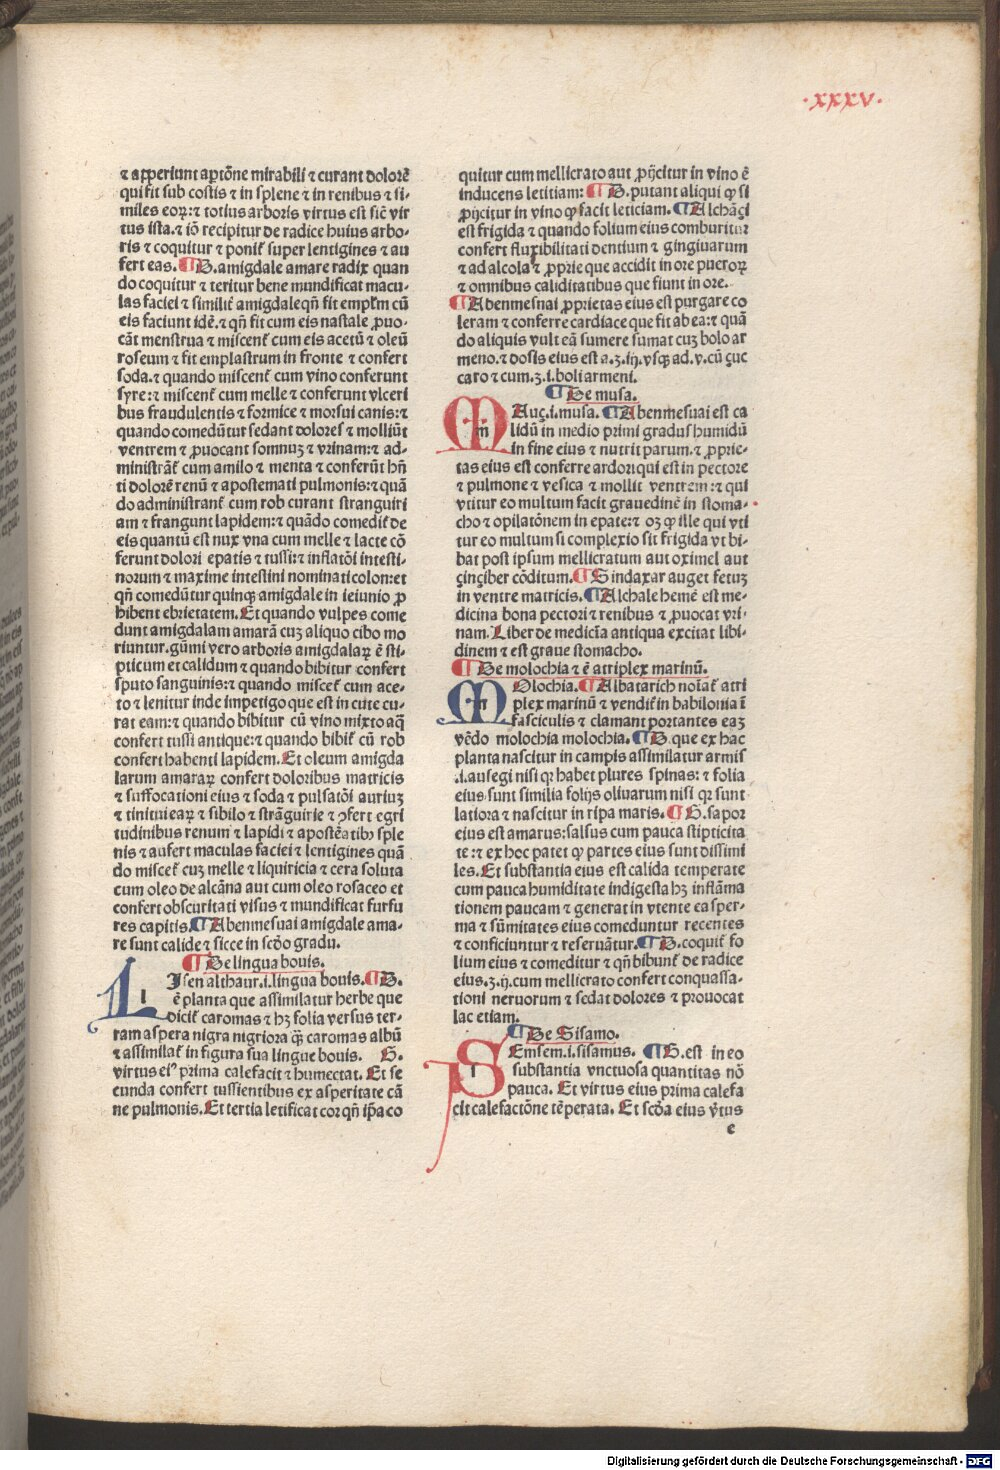 .xxxv.
⁊ apperiunt aꝑtōne mirabili ⁊ curant dolorē
qui fit sub costis ⁊ in splene ⁊ in renibus ⁊ si-
miles eoꝝ: ⁊ totius arboris virtus est sicut̄ vir
tus ista. ⁊ iō recipitur de radice huius arbo-
ris ⁊ coquitur ⁊ ponit̃ super lentigines ⁊ au
fert eas. ¶ D. amigdale amare radix quan
do coquitur ⁊ teritur bene mundificat macu-
las faciei ⁊ similit̃ amigdale qn̄ fit emplr̄m cū
eis faciunt idē. ⁊ qn̄ fit cum eis nastale ꝓuo-
cāt menstrua ⁊ miscent̃ cum eis acetū ⁊ oleū
roseum ⁊ fit emplastrum in fronte ⁊ confert
soda. ⁊ quando miscent̃ cum vino conferunt
syre: ⁊ miscent̃ cum melle ⁊ conferunt vlceri
bus fraudulentis ⁊ formice ⁊ morsui canis: ⁊
quando comedūtur sedant dolores ⁊ molliūt
ventrem ⁊ ꝓuocant somnuꝫ ⁊ vrinam: ⁊ ad-
ministrāt̃ cum amilo ⁊ menta ⁊ conferūt hn̄
ti dolorē renū ⁊ apostemati pulmonis: ⁊ quā
do administrant̃ cum rob curant stranguiri
am ⁊ frangunt lapidem: ⁊ quādo comedit̃ de
eis quantū est nux vna cum melle ⁊ lacte cō
ferunt dolori epatis ⁊ tussi: ⁊ inflatōi intesti
norum ⁊ maxime intestini nominati colon: et
qn̄ comedūtur quinqꝫ amigdale in ieiunio ꝓ
hibent ebrietatem. Et quando vulpes come
dunt amigdalam amarā cuꝫ aliquo cibo mo
riuntur. gūmi vero arboris amigdalaꝝ ē sti-
pticum et calidum ⁊ quando bibitur confert
sputo sanguinis: ⁊ quando miscet̃ cum ace-
to ⁊ lenitur inde impetigo que est in cute cu-
rat eam: ⁊ quando bibitur cū vino mixto aq̄
confert tussi antique: ⁊ quando bibit̃ cū rob
confert habenti lapidem. Et oleum amigda
larum amaraꝝ confert doloribus matricis
⁊ suffocationi eius ⁊ soda ⁊ pulsatōi auriuꝫ
⁊ tinitui eaꝝ ⁊ sibilo ⁊ strāguirie ⁊ ꝯfert egri
tudinibus renum ⁊ lapidi ⁊ apostēatibꝫ sple
nis ⁊ aufert maculas faciei ⁊ lentigines quā
do miscet̃ cuꝫ melle ⁊ liquiricia ⁊ cera soluta
cum oleo de alcāna aut cum oleo rosaceo et
confert obscuritati visus ⁊ mundificat furfu
res capitis. ¶ Abenmesuai amigdale ama-
re sunt calide ⁊ sicce in scd̄o gradu.
¶ De lingua bouis.
LIsen althaur .i. lingua bouis. ¶ D.
ē planta que assimilatur herbe que
dicit̃ caromas ⁊ hꝫ folia versus ter-
ram aspera nigra nigriora qꝫ̄ caromas albū
⁊ assimilat̃ in figura sua lingue bouis. G.
virtus eiꝰ prima calefacit ⁊ humectat. Et se
cunda confert tussientibus ex asperitate cā
ne pulmonis. Et tertia letificat cor qn̄ ip̄a co
quitur cum mellicrato aut ꝓijcitur in vino ē
inducens letitiam: ¶ D. putant aliqui ꝙ si
ꝓijcitur in vino ꝙ facit leticiam. ¶ Alchāçi
est frigida ⁊ quando folium eius comburitur
confert fluxibilitati dentium ⁊ gingiuarum
⁊ ad alcola ꝓprie que accidit in ore pueroꝝ
⁊ omnibus caliditatibus que fiunt in ore.
¶ Abenmesuai ꝓprietas eius est purgare co
leram ⁊ conferre cardiace que fit ab ea: ⁊ quā
do aliquis vult eā sumere sumat cuꝫ bolo ar
meno. ⁊ dosis eius est a .ʒ. iij. vsqꝫ ad .v. cū çuc
caro ⁊ cum .ʒ. i. boli armeni.
¶ De musa.
MAuç .i. musa. ¶ Abenmesuai est ca
lidū in medio primi gradus humidū
in fine eius ⁊ nutrit parum. ⁊ ꝓprie-
tas eius est conferre ardori qui est in pectore
⁊ pulmone ⁊ vesica ⁊ mollit ventrem: ⁊ qui
vtitur eo multum facit grauedinē in stoma-
cho ⁊ opilatōnem in epate: ⁊ oꝫ ꝙ ille qui vti
tur eo multum si complexio sit frigida vt bi-
bat post ipsum mellicratum aut oximel aut
çinçiber cōditum. ¶ Sindaxar auget fetuꝫ
in ventre matricis. ¶ Alchalehemē est me-
dicina bona pectori ⁊ renibus ⁊ ꝓuocat vri-
nam. Liber de medicīa antiqua excitat libi-
dinem ⁊ est graue stomacho.
¶ De molochia ⁊ ē atriplex marinū.
MOlochia. ¶ Albatarich noīat̃ atri
plex marinū ⁊ vendit̃ in babilonia ī
fasciculis ⁊ clamant portantes eaꝫ
vēdo molochia molochia. ¶ D. que ex hac
planta nascitur in campis assimilatur armis
.i. ausegi nisi qꝛ habet plures spinas: ⁊ folia
eius sunt similia folijs oliuarum nisi qꝛ sunt
latiora ⁊ nascitur in ripa maris. ¶ G. sapor
eius est amarus: salsus cum pauca stipticita
te: ⁊ ex hoc patet ꝙ partes eius sunt dissimi
les. Et substantia eius est calida temperate
cum pauca humiditate indigesta hꝫ inflāma
tionem paucam ⁊ generat in vtente ea sper-
ma ⁊ sūmitates eius comeduntur recentes
⁊ conficiuntur ⁊ reseruātur. ¶ D. coquit̃ fo
lium eius ⁊ comeditur ⁊ qn̄ bibunt̃ de radice
eius .ʒ. ij. cum mellicrato confert conquassa-
tioni neruorum ⁊ sedat dolores ⁊ prouocat
lac etiam.
¶ De Sisamo.
SEmsem .i. sisamus. ¶ G. est in eo
substantia vnctuosa quantitas nō
pauca. Et virtus eius prima calefa
cit calefactōne tēperata. Et scd̄a eius v̄tus
e
Digitalisierung gefördert durch die Deutsche Forschungsgemeinschaft - DFG